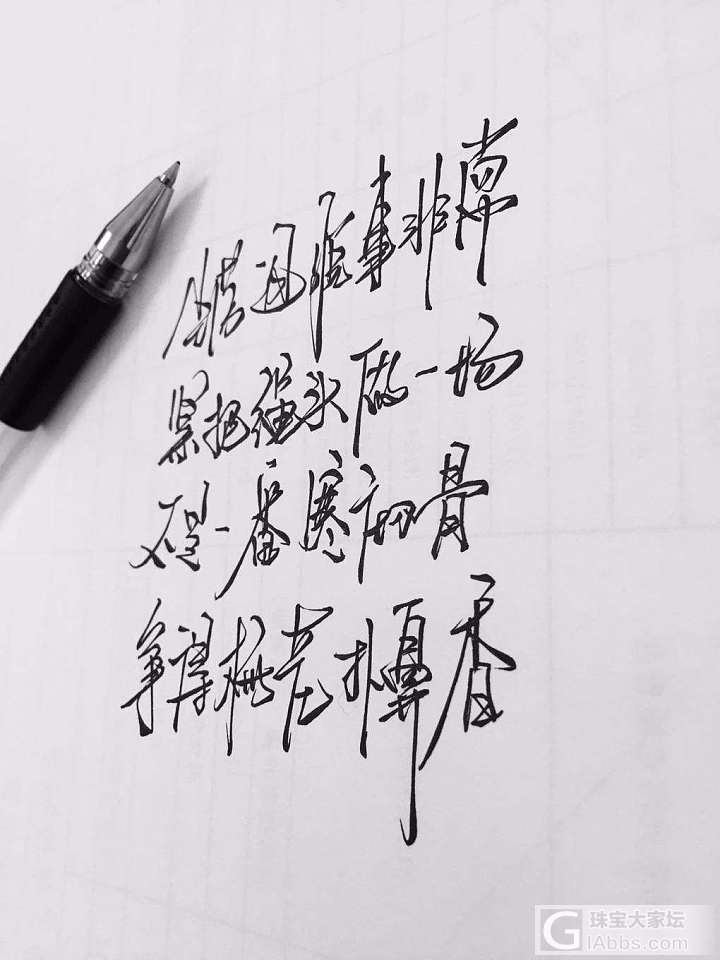 迥脱事非常
紧把绳头做一场
不是一番寒彻骨
争得梅花扑鼻香
珠宝大家坛
GIAbbs.com